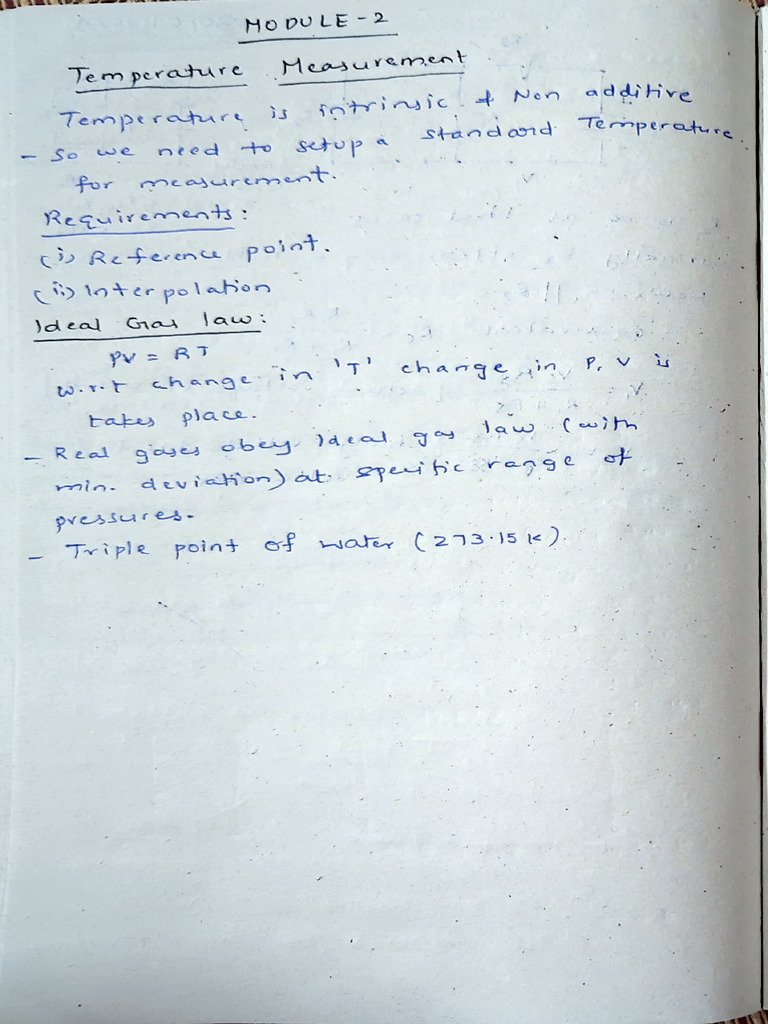 MODULE - 2
Temperature Measurement
Temperature is intrinsic & Non additive
- so we need to setup a standard Temperature
for measurement.
Requirements:
(i) Reference point.
(ii) Interpolation
Ideal Gas law:
PV = RT
w.r.t change in 'T' change in P, V is
takes place.
- Real gases obey Ideal gas law (with
min. deviation) at specific range of
pressures.
- Triple point of water (273.15 K).